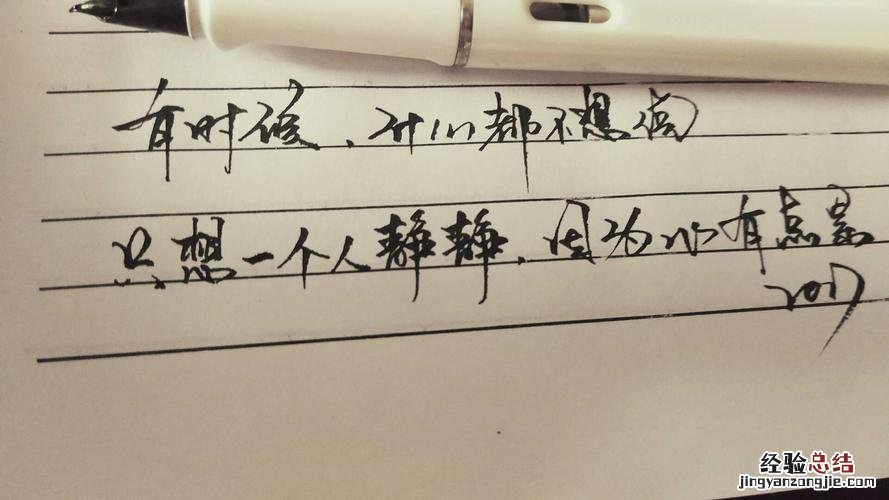 有时候、都不想
只想一个人静静,因为心有点累
2017
经验总结
jingyanzongjie.com